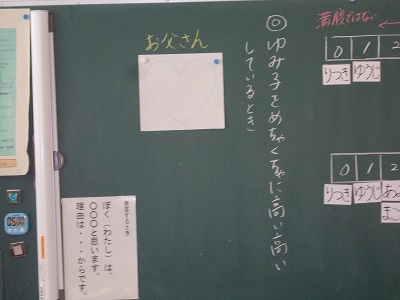 お父さん
◎ゆみ子をめちゃくちゃに高い高い
しているとき
満腹ではない
0 1 2
りつき ゆうじ
0 1 2
りつき ゆうじ
発表するとき
ぼく(わたし)は、
〇〇〇と思います。
理由は・・・からです。
05:00